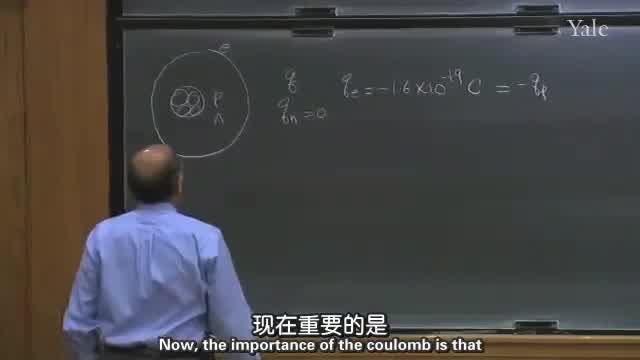 Yale
e
P
n
q
q_e = -1.6×10^-19 C = -q_p
q_n = 0
现在重要的是
Now, the importance of the coulomb is that